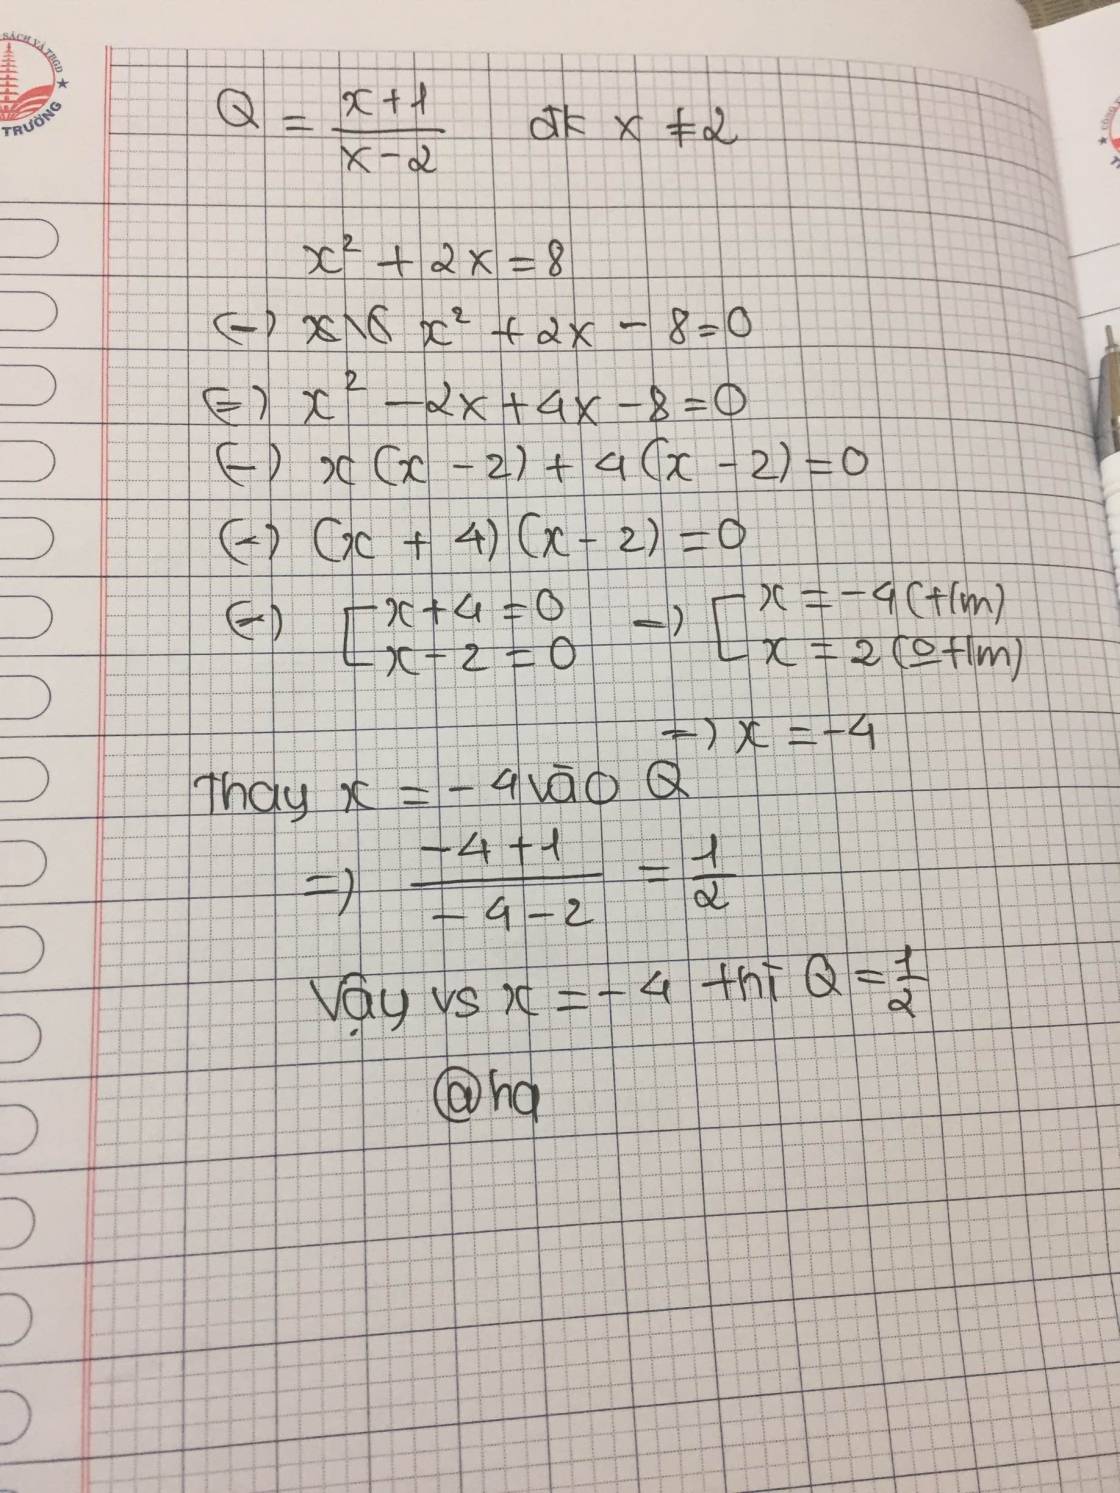 SÁCH VÀ TBGD
TRƯỜNG
Q = \frac{x+1}{x-2} đk x ≠ 2
x² + 2x = 8
(=) x² + 2x - 8 = 0
(=) x² - 2x + 4x - 8 = 0
(=) x(x - 2) + 4(x - 2) = 0
(=) (x + 4)(x - 2) = 0
(=) [x + 4 = 0 => [x = -4 (t/m)
x - 2 = 0 x = 2 (o t/m)
=> x = -4
Thay x = -4 vào Q
=> \frac{-4+1}{-4-2} = \frac{1}{2}
Vậy vs x = -4 thì Q = \frac{1}{2}
@hq